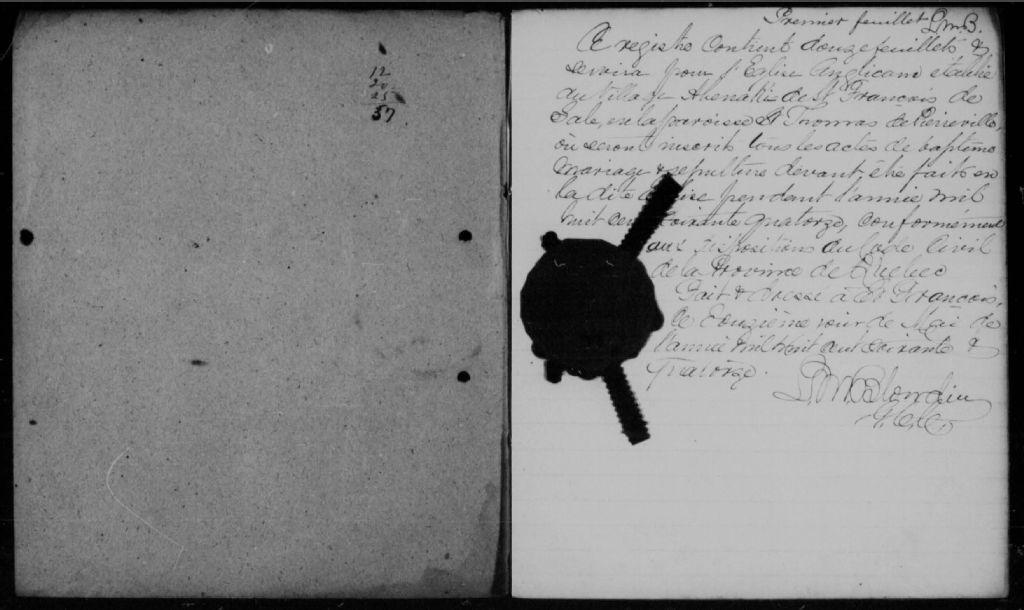 12
20
25
57
Premier feuillet L.M.B.
Ce registre Contient douze feuillets &
servira pour l'Eglise Anglicane établie
au village Abenakis de St François de
Sale, en la paroisse St Thomas de Pierreville,
où seront inscrits tous les actes de baptême
mariage & sepulture devant être faits en
la dite Eglise pendant l'année mil
huit cent soixante quatorze, conformément
aux dispositions du Code Civil
de la Province de Québec
Fait & dressé à St François,
le jour de Mai de
l'année mil huit cent soixante &
quatorze.
Blondin